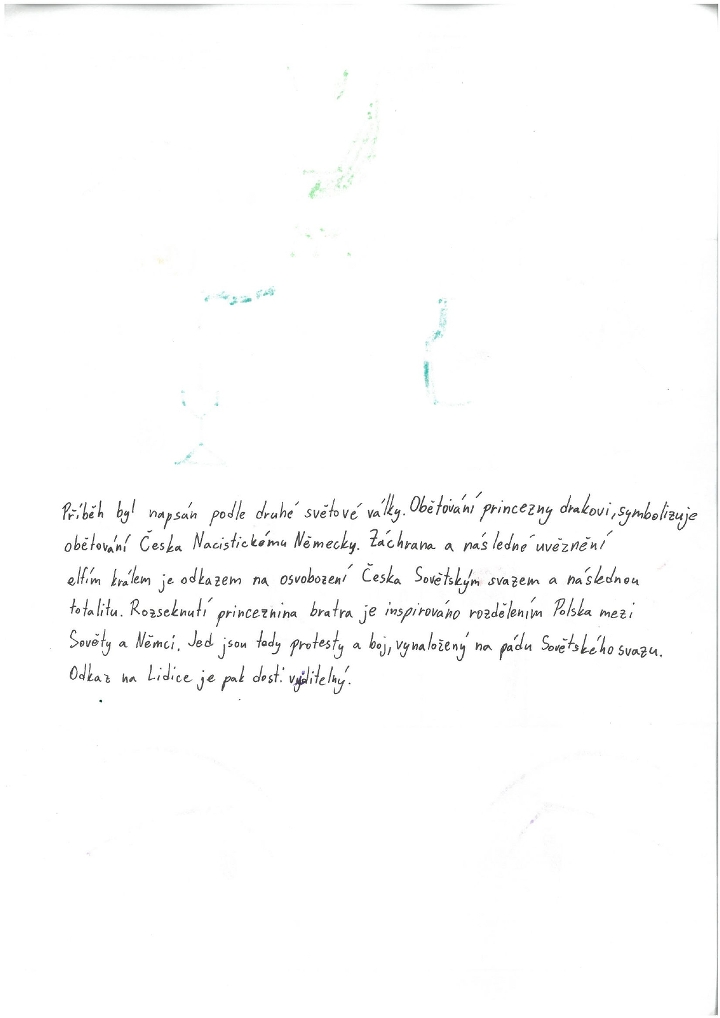 Příběh byl napsán podle druhé světové války. Obětování princezny drakovi, symbolizuje
obětování Česka Nacistickému Německy. Záchrana a následné uvěznění
elfím králem je odkazem na osvobození Česka Sovětským svazem a následnou
totalitu. Rozseknutí princeznina bratra je inspirováno rozdělením Polska mezi
Sověty a Němci. Jed jsou tady protesty a boj, vynaložený na pádu Sovětského svazu.
Odkaz na Lidice je pak dosti viditelný.